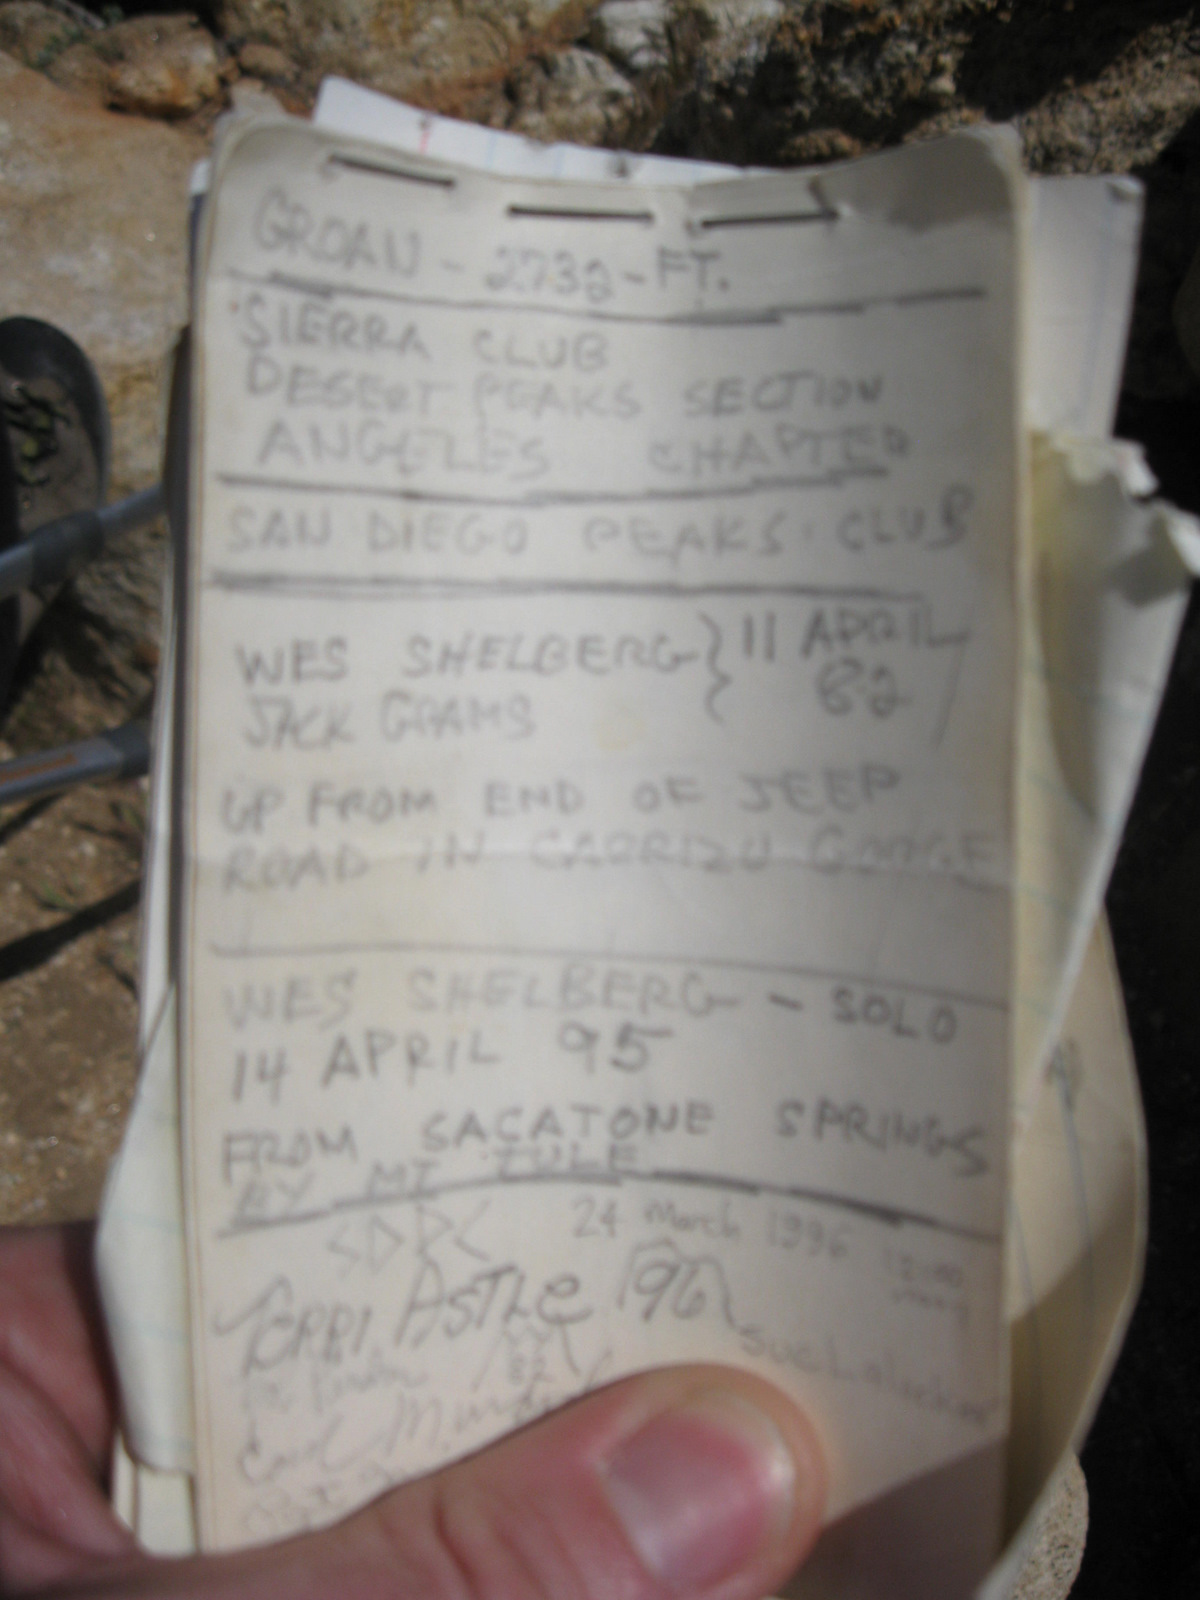 GROAN - 2732 - FT.
SIERRA CLUB
DESERT PEAKS SECTION
ANGELES CHAPTER
SAN DIEGO PEAKS CLUB
WES SHELBERG } 11 APRIL
JACK GRAMS 82
UP FROM END OF JEEP
ROAD IN CARRIZO GORGE
WES SHELBERG - SOLO
14 APRIL 95
FROM SACATONE SPRINGS
BY MT TULE
SDPC 24 March 1996
TERRI ASTLE 96
Carl